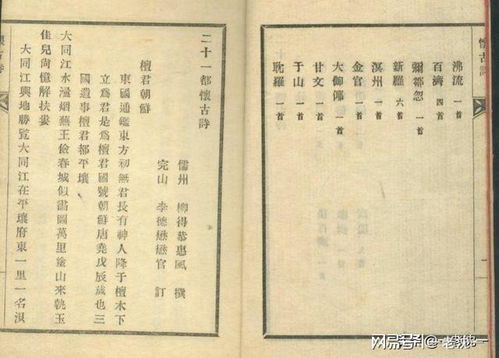 懷古詩
沸流 一首
百濟 四首
彌鄒忽 一首
新羅 六首
溟州 一首
金官 一首
大伽倻 一首
甘文 一首
于山 一首
耽羅 一首
二十一都懷古詩
儒州 柳得恭惠風 撰
完山 李德懋懋官 訂
檀君朝鮮
東國通鑑東方初無君長有神人降于檀木下
立爲君是爲檀君國號朝鮮唐堯戊辰歲也三
國遺事檀君都平壤
大同江水浸烟蕪王儉春城似畵圖萬里塗山來執玉
佳兒尙憶解扶婁
大同江輿地勝覽大同江在平壤府東一里一名浿
懷古詩
网易号